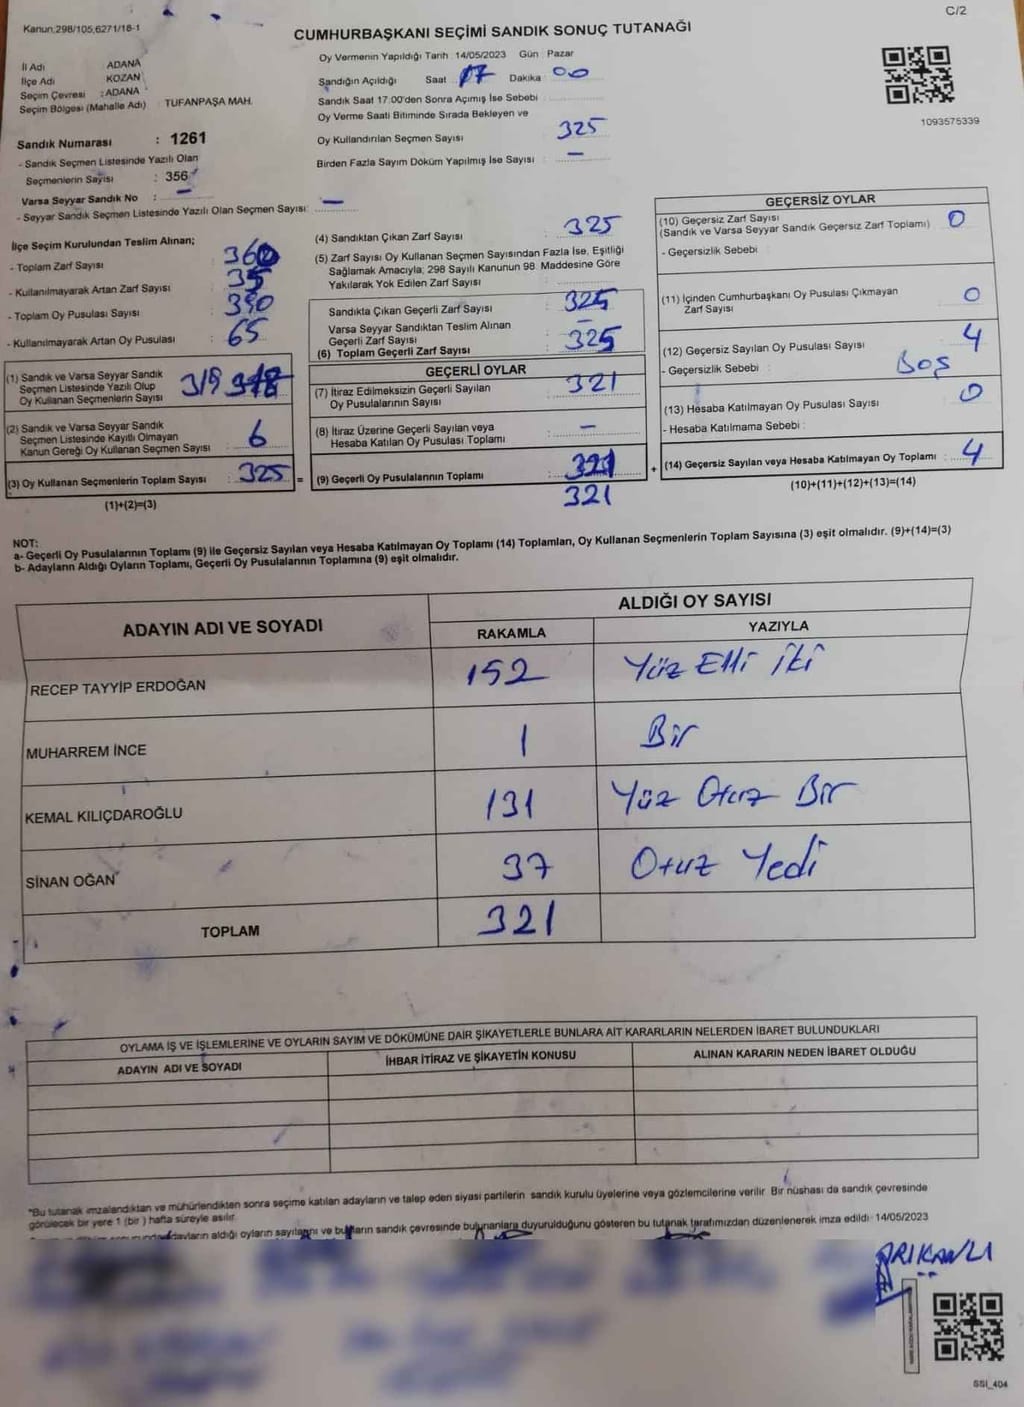 Kanun:298/105,6271/18-1
C/2
CUMHURBAŞKANI SEÇİMİ SANDIK SONUÇ TUTANAĞI
İl Adı ADANA
İlçe Adı KOZAN
Seçim Çevresi : ADANA
Seçim Bölgesi (Mahalle Adı) : TUFANPAŞA MAH.
Sandık Numarası : 1261
- Sandık Seçmen Listesinde Yazılı Olan
Seçmenlerin Sayısı : 356
Varsa Seyyar Sandık No : -
- Seyyar Sandık Seçmen Listesinde Yazılı Olan Seçmen Sayısı: -
Oy Vermenin Yapıldığı Tarih 14/05/2023 Gün : Pazar
Sandığın Açıldığı Saat : 17 Dakika : 00
Sandık Saat 17:00'den Sonra Açımış İse Sebebi
Oy Verme Saati Bitiminde Sırada Bekleyen ve
Oy Kullandırılan Seçmen Sayısı : 325
Birden Fazla Sayım Döküm Yapılmış İse Sayısı : -
1093575339
İlçe Seçim Kurulundan Teslim Alınan;
- Toplam Zarf Sayısı : 360
- Kullanılmayarak Artan Zarf Sayısı : 35
- Toplam Oy Pusulası Sayısı : 390
- Kullanılmayarak Artan Oy Pusulası : 65
(1) Sandık ve Varsa Seyyar Sandık
Seçmen Listesinde Yazılı Olup
Oy Kullanan Seçmenlerin Sayısı : 319
(2) Sandık ve Varsa Seyyar Sandık
Seçmen Listesinde Kayıtlı Olmayan
Kanun Gereği Oy Kullanan Seçmen Sayısı : 6
(3) Oy Kullanan Seçmenlerin Toplam Sayısı : 325 =
(1)+(2)=(3)
(4) Sandıktan Çıkan Zarf Sayısı : 325
(5) Zarf Sayısı Oy Kullanan Seçmen Sayısından Fazla İse, Eşitliği
Sağlamak Amacıyla; 298 Sayılı Kanunun 98. Maddesine Göre
Yakılarak Yok Edilen Zarf Sayısı :
Sandıkta Çıkan Geçerli Zarf Sayısı : 325
Varsa Seyyar Sandıktan Teslim Alınan
Geçerli Zarf Sayısı : -
(6) Toplam Geçerli Zarf Sayısı : 325
GEÇERLİ OYLAR
(7) İtiraz Edilmeksizin Geçerli Sayılan
Oy Pusulalarının Sayısı : 321
(8) İtiraz Üzerine Geçerli Sayılan veya
Hesaba Katılan Oy Pusulası Toplamı : -
(9) Geçerli Oy Pusulalarının Toplamı : 321 +
321
GEÇERSİZ OYLAR
(10) Geçersiz Zarf Sayısı
(Sandık ve Varsa Seyyar Sandık Geçersiz Zarf Toplamı) : 0
- Geçersizlik Sebebi :
(11) İçinden Cumhurbaşkanı Oy Pusulası Çıkmayan
Zarf Sayısı : 0
(12) Geçersiz Sayılan Oy Pusulası Sayısı : 4
- Geçersizlik Sebebi : Boş
(13) Hesaba Katılmayan Oy Pusulası Sayısı : 0
- Hesaba Katılmama Sebebi :
(14) Geçersiz Sayılan veya Hesaba Katılmayan Oy Toplamı : 4
(10)+(11)+(12)+(13)=(14)
NOT:
a- Geçerli Oy Pusulalarının Toplamı (9) ile Geçersiz Sayılan veya Hesaba Katılmayan Oy Toplamı (14) Toplamları, Oy Kullanan Seçmenlerin Toplam Sayısına (3) eşit olmalıdır. (9)+(14)=(3)
b- Adayların Aldığı Oyların Toplamı, Geçerli Oy Pusulalarının Toplamına (9) eşit olmalıdır.
ADAYIN ADI VE SOYADI
ALDIĞI OY SAYISI
RAKAMLA YAZIYLA
RECEP TAYYİP ERDOĞAN 152 Yüz Elli iki
MUHARREM İNCE 1 Bir
KEMAL KILIÇDAROĞLU 131 Yüz Otuz Bir
SİNAN OĞAN 37 Otuz Yedi
TOPLAM 321
OYLAMA İŞ VE İŞLEMLERİNE VE OYLARIN SAYIM VE DÖKÜMÜNE DAİR ŞİKAYETLERLE BUNLARA AİT KARARLARIN NELERDEN İBARET BULUNDUKLARI
ADAYIN ADI VE SOYADI İHBAR İTİRAZ VE ŞİKAYETİN KONUSU ALINAN KARARIN NEDEN İBARET OLDUĞU
*Bu tutanak imzalandıktan ve mühürlendikten sonra seçime katılan adayların ve talep eden siyasi partilerin sandık kurulu üyelerine veya gözlemcilerine verilir. Bir nüshası da sandık çevresinde
görülecek bir yere 1 (bir) hafta süreyle asılır.
adayların aldığı oyların sayılarını ve bunların sandık çevresinde bulunanlara duyurulduğunu gösteren bu tutanak tarafımızdan düzenlenerek imza edildi. 14/05/2023
ARIKANLI
SSI_404